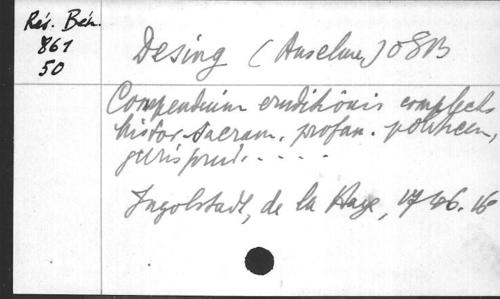 Rés. Bén.
861
50
Desing (Anselme) OSB
Compendium eruditionis complect.
histor. sacram. profan. politicam,
juris prud. . . . .
Ingolstadt, de la Haye, 1746. 16